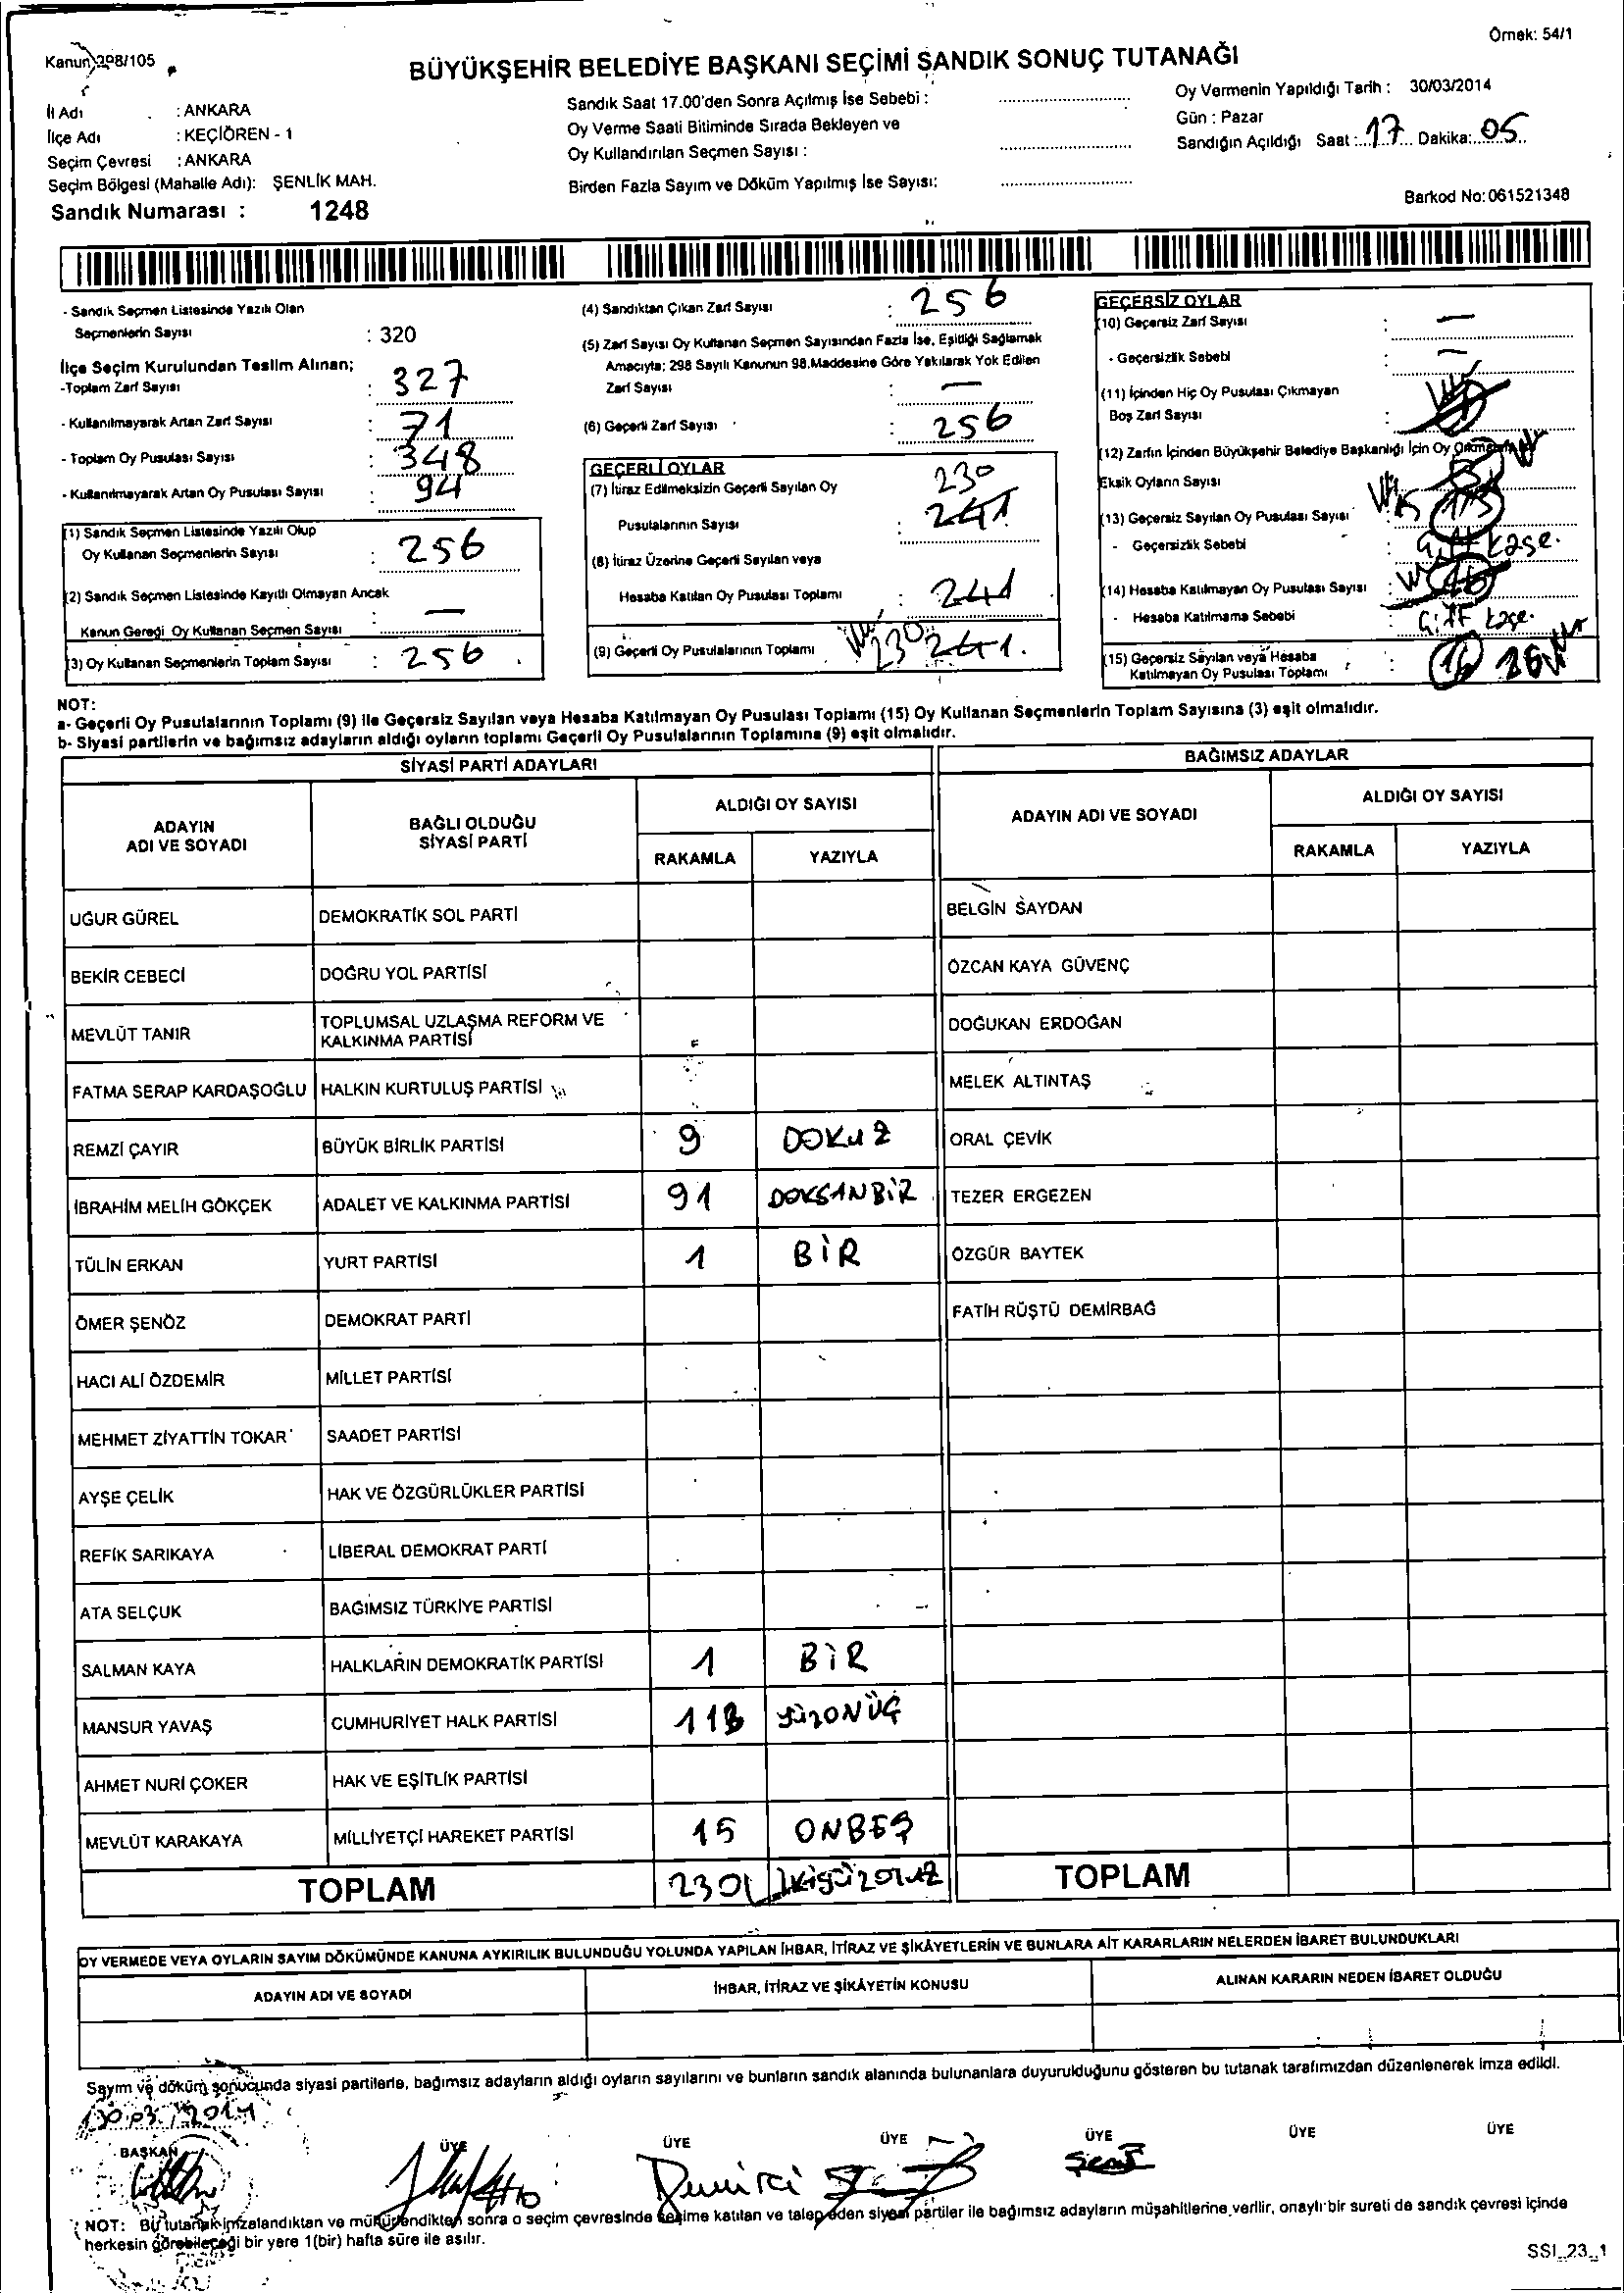 Örnek: 54/1
Kanun 298/105
BÜYÜKŞEHİR BELEDİYE BAŞKANI SEÇİMİ SANDIK SONUÇ TUTANAĞI
İl Adı : ANKARA
İlçe Adı : KEÇİÖREN - 1
Seçim Çevresi : ANKARA
Seçim Bölgesi (Mahalle Adı): ŞENLİK MAH.
Sandık Numarası : 1248
Sandık Saat 17.00'den Sonra Açılmış İse Sebebi :
Oy Verme Saati Bitiminde Sırada Bekleyen ve
Oy Kullandırılan Seçmen Sayısı :
Birden Fazla Sayım ve Döküm Yapılmış İse Sayısı:
Oy Vermenin Yapıldığı Tarih : 30/03/2014
Gün : Pazar
Sandığın Açıldığı Saat : 17 Dakika: 05
Barkod No: 061521348
- Sandık Seçmen Listesinde Yazılı Olan
Seçmenlerin Sayısı : 320
İlçe Seçim Kurulundan Teslim Alınan;
-Toplam Zarf Sayısı : 327
- Kullanılmayarak Artan Zarf Sayısı : 71
- Toplam Oy Pusulası Sayısı : 348
- Kullanılmayarak Artan Oy Pusulası Sayısı : 94
(1) Sandık Seçmen Listesinde Yazılı Olup
Oy Kullanan Seçmenlerin Sayısı : 256
(2) Sandık Seçmen Listesinde Kayıtlı Olmayan Ancak
Kanun Gereği Oy Kullanan Seçmen Sayısı : —
(3) Oy Kullanan Seçmenlerin Toplam Sayısı : 256
(4) Sandıktan Çıkan Zarf Sayısı : 256
(5) Zarf Sayısı Oy Kullanan Seçmen Sayısından Fazla İse, Eşitliği Sağlamak
Amacıyla; 298 Sayılı Kanunun 98.Maddesine Göre Yakılarak Yok Edilen
Zarf Sayısı : —
(6) Geçerli Zarf Sayısı : 256
GEÇERLİ OYLAR
(7) İtiraz Edilmeksizin Geçerli Sayılan Oy 230
Pusulalarının Sayısı : 241
(8) İtiraz Üzerine Geçerli Sayılan veya
Hesaba Katılan Oy Pusulası Toplamı : 241
(9) Geçerli Oy Pusulalarının Toplamı 230 241.
GEÇERSİZ OYLAR
(10) Geçersiz Zarf Sayısı : —
- Geçersizlik Sebebi : —
(11) İçinden Hiç Oy Pusulası Çıkmayan
Boş Zarf Sayısı :
(12) Zarfın İçinden Büyükşehir Belediye Başkanlığı İçin Oy
Eksik Oyların Sayısı
(13) Geçersiz Sayılan Oy Pusulası Sayısı
- Geçersizlik Sebebi : Çift kaşe.
(14) Hesaba Katılmayan Oy Pusulası Sayısı :
- Hesaba Katılmama Sebebi : Çift kaşe.
(15) Geçersiz Sayılan veya Hesaba
Katılmayan Oy Pusulası Toplamı : 26
NOT:
a- Geçerli Oy Pusulalarının Toplamı (9) ile Geçersiz Sayılan veya Hesaba Katılmayan Oy Pusulası Toplamı (15) Oy Kullanan Seçmenlerin Toplam Sayısına (3) eşit olmalıdır.
b- Siyasi partilerin ve bağımsız adayların aldığı oyların toplamı Geçerli Oy Pusulalarının Toplamına (9) eşit olmalıdır.
SİYASİ PARTİ ADAYLARI BAĞIMSIZ ADAYLAR
ADAYIN ADI VE SOYADI BAĞLI OLDUĞU SİYASİ PARTİ ALDIĞI OY SAYISI ADAYIN ADI VE SOYADI ALDIĞI OY SAYISI
RAKAMLA YAZIYLA RAKAMLA YAZIYLA
UĞUR GÜREL DEMOKRATİK SOL PARTİ BELGİN SAYDAN
BEKİR CEBECİ DOĞRU YOL PARTİSİ ÖZCAN KAYA GÜVENÇ
MEVLÜT TANIR TOPLUMSAL UZLAŞMA REFORM VE KALKINMA PARTİSİ DOĞUKAN ERDOĞAN
FATMA SERAP KARDAŞOĞLU HALKIN KURTULUŞ PARTİSİ MELEK ALTINTAŞ
REMZİ ÇAYIR BÜYÜK BİRLİK PARTİSİ 9 DOKUZ ORAL ÇEVİK
İBRAHİM MELİH GÖKÇEK ADALET VE KALKINMA PARTİSİ 91 DOKSANBİR TEZER ERGEZEN
TÜLİN ERKAN YURT PARTİSİ 1 BİR ÖZGÜR BAYTEK
ÖMER ŞENÖZ DEMOKRAT PARTİ FATİH RÜŞTÜ DEMİRBAĞ
HACI ALİ ÖZDEMİR MİLLET PARTİSİ
MEHMET ZİYATTİN TOKAR SAADET PARTİSİ
AYŞE ÇELİK HAK VE ÖZGÜRLÜKLER PARTİSİ
REFİK SARIKAYA LİBERAL DEMOKRAT PARTİ
ATA SELÇUK BAĞIMSIZ TÜRKİYE PARTİSİ
SALMAN KAYA HALKLARIN DEMOKRATİK PARTİSİ 1 BİR
MANSUR YAVAŞ CUMHURİYET HALK PARTİSİ 113 YÜZONÜÇ
AHMET NURİ ÇOKER HAK VE EŞİTLİK PARTİSİ
MEVLÜT KARAKAYA MİLLİYETÇİ HAREKET PARTİSİ 15 ONBEŞ
TOPLAM 230 İkiyüzotuz TOPLAM
OY VERMEDE VEYA OYLARIN SAYIM DÖKÜMÜNDE KANUNA AYKIRILIK BULUNDUĞU YOLUNDA YAPILAN İHBAR, İTİRAZ VE ŞİKÂYETLERİN VE BUNLARA AİT KARARLARIN NELERDEN İBARET BULUNDUKLARI
ADAYIN ADI VE SOYADI İHBAR, İTİRAZ VE ŞİKÂYETİN KONUSU ALINAN KARARIN NEDEN İBARET OLDUĞU
Sayım ve döküm sonucunda siyasi partilerle, bağımsız adayların aldığı oyların sayılarını ve bunların sandık alanında bulunanlara duyurulduğunu gösteren bu tutanak tarafımızdan düzenlenerek imza edildi.
30.03.2014
BAŞKAN ÜYE ÜYE ÜYE ÜYE ÜYE ÜYE
Demirci
NOT: Bu tutanak imzalandıktan ve mühürlendikten sonra o seçim çevresinde seçime katılan ve talep eden siyasi partiler ile bağımsız adayların müşahitlerine verilir, onaylı bir sureti de sandık çevresi içinde
herkesin görebileceği bir yere 1(bir) hafta süre ile asılır.
SSI_23_1